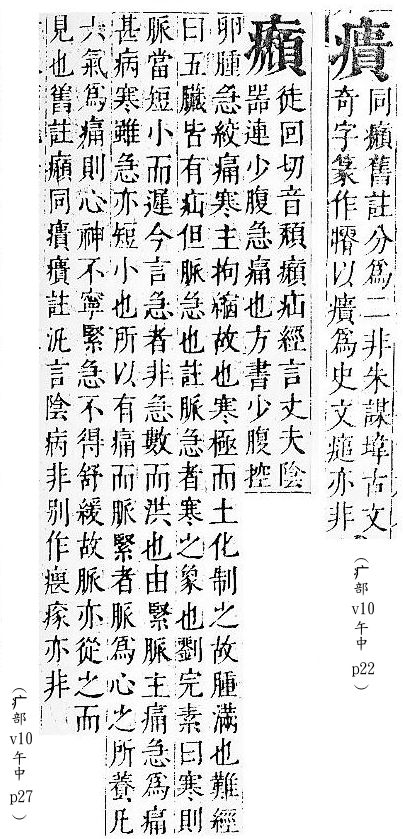 㿉
同㿗舊註分爲二非朱謀㙔古文
奇字篆作以㿉爲史文亦非
（疒部
v10
午中
p22）
㿗
徒回切音頹㿗疝經言丈夫陰
器連少腹急痛也方書少腹控
卵腫急絞痛寒主拘縮故也寒極而土化制之故腫滿也難經
曰五臟皆有疝但脈急也註脈急者寒之象也劉完素曰寒則
脈當短小而遲今言急者非急數而洪也由緊脈主痛急爲痛
甚病寒雖急亦短小也所以有痛而脈緊者脈爲心之所養凡
六氣爲痛則心神不寧緊急不得舒緩故脈亦從之而
見也舊註㿗同㿉㿉註汎言陰病非別作瘃亦非
（疒部
v10
午中
p27）